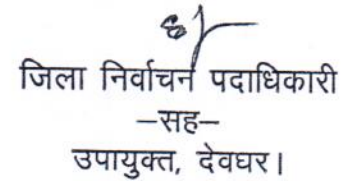 जिला निर्वाचन पदाधिकारी
–सह–
उपायुक्त, देवघर।